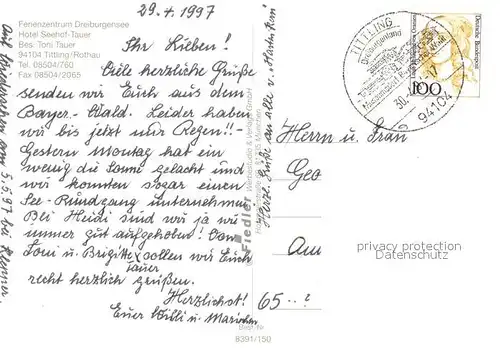 29.4.1997
Ferienzentrum Dreiburgensee
Hotel Seehof-Tauer
Bes. Toni Tauer
94104 Tittling/Rothau
Tel. 08504/760
Fax 08504/2065
Ihr Lieben!
Viele herzliche Grüße
senden wir Euch aus dem
Bayer. Wald. Leider haben
wir bis jetzt nur Regen!!
Gestern Montag hat ein
wenig die Sonne gelacht und
wir konnten sogar einen
See-Rundgang unternehmen.
Bei Heidi sind wir ja wie
immer gut aufgehoben! Von
Toni u. Brigitte Tauer sollen wir Euch
recht herzlich grüßen.
Herzlichst!
Euer Willi u.
Best. Nr.
8391/150
Fiedler
Herzl. Grüße an alle v.
TITTLING
Dreiburgenland
94104
30.
100
Deutsche Bundespost
Herrn u. Frau
Geo
Am
65..?
privacy protection
Datenschutz
5.5.97